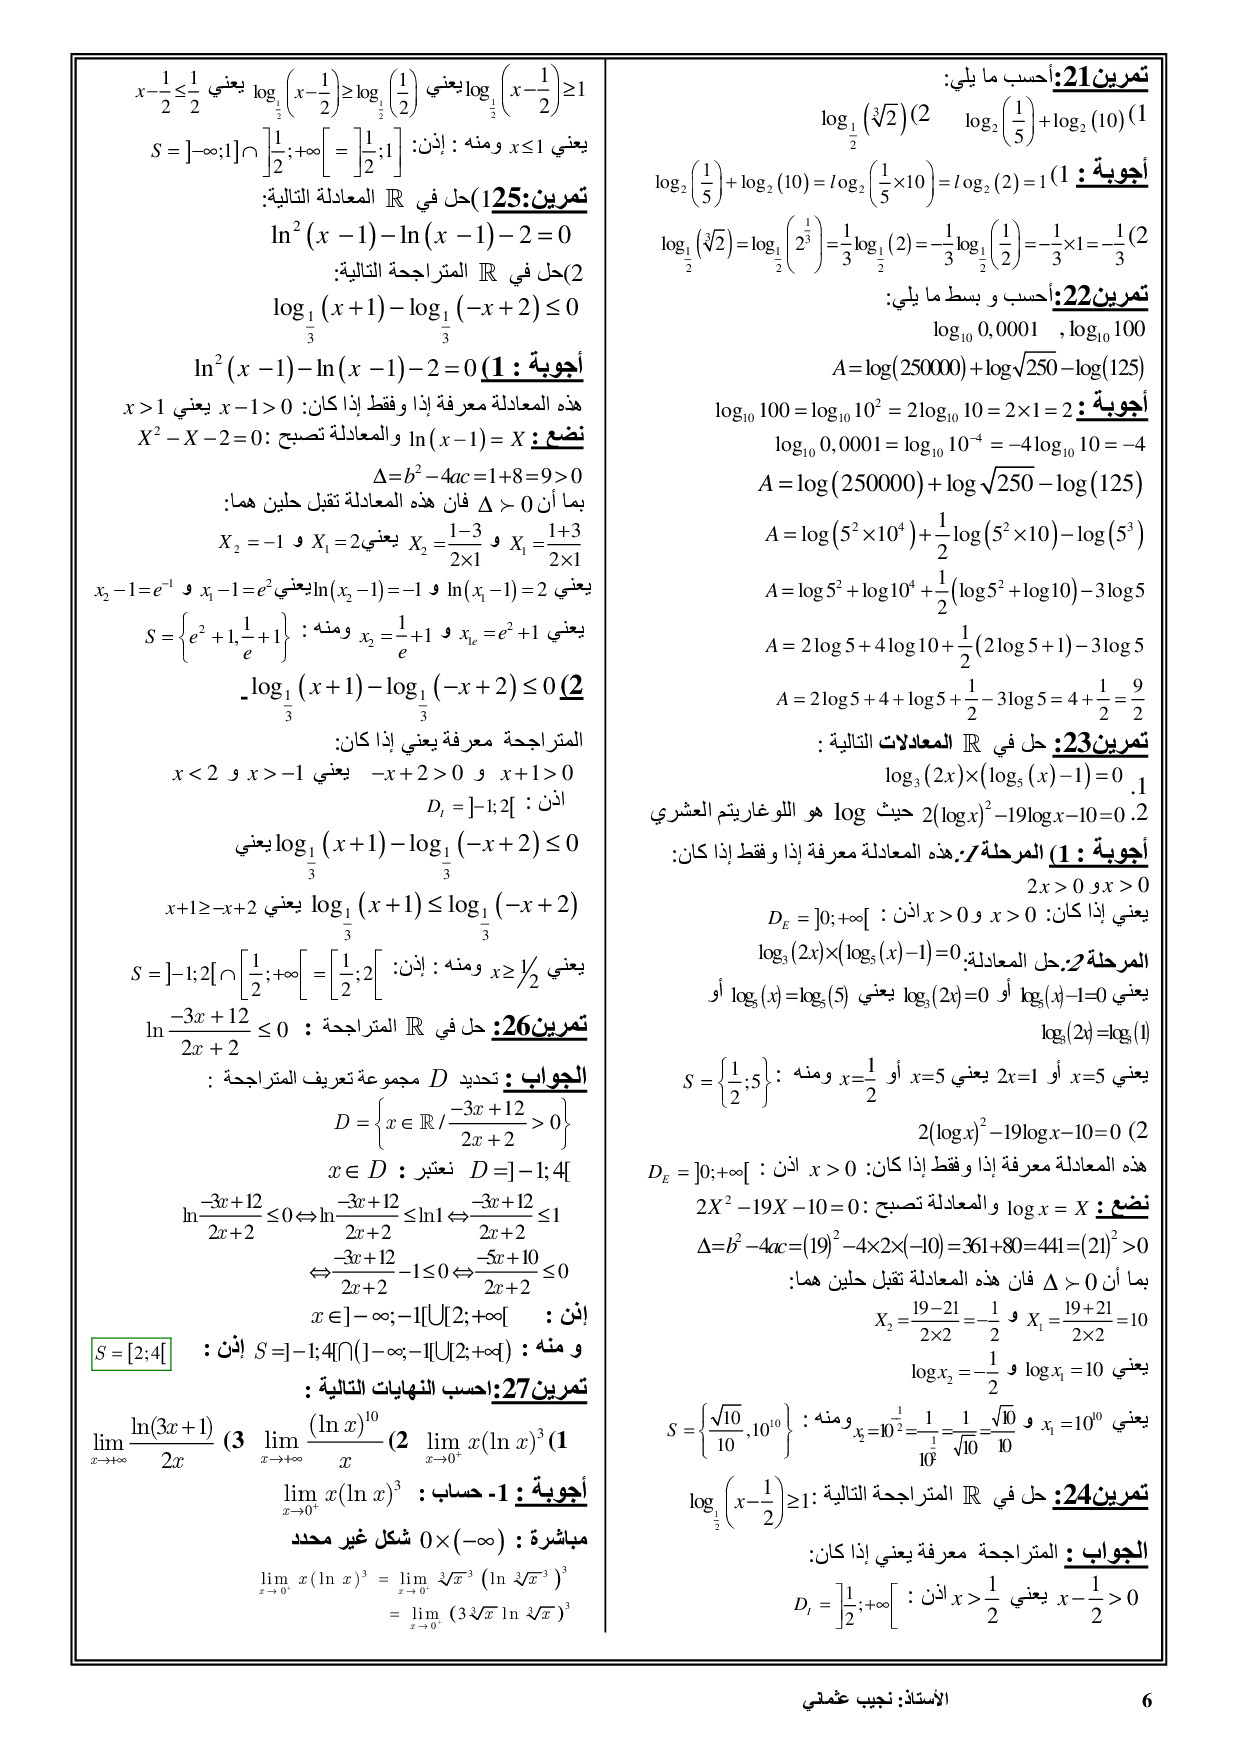 تمرين21:أحسب ما يلي:
1) log₂(1/5)+log₂(10) 2) log_{1/2}(∛2)
أجوبة : 1) log₂(1/5)+log₂(10)=log₂(1/5×10)=log₂(2)=1
2) log_{1/2}(∛2)=log_{1/2}(2^{1/3})=1/3 log_{1/2}(2)=−1/3 log_{1/2}(1/2)=−1/3×1=−1/3
تمرين22:أحسب و بسط ما يلي:
log₁₀ 0,0001 , log₁₀ 100
A=log(250000)+log√250−log(125)
أجوبة : log₁₀ 100=log₁₀ 10²=2log₁₀ 10=2×1=2
log₁₀ 0,0001=log₁₀ 10⁻⁴=−4log₁₀ 10=−4
A=log(250000)+log√250−log(125)
A=log(5²×10⁴)+1/2 log(5²×10)−log(5³)
A=log5²+log10⁴+1/2(log5²+log10)−3log5
A=2log5+4log10+1/2(2log5+1)−3log5
A=2log5+4+log5+1/2−3log5=4+1/2=9/2
تمرين23: حل في ℝ المعادلات التالية :
1. log₃(2x)×(log₅(x)−1)=0
2. 2(logx)²−19logx−10=0 حيث log هو اللوغاريتم العشري
أجوبة : 1) المرحلة 1:هذه المعادلة معرفة إذا وفقط إذا كان:
x>0 و 2x>0
يعني إذا كان: x>0 و x>0 اذن : D_E=]0;+∞[
المرحلة 2:حل المعادلة: log₃(2x)×(log₅(x)−1)=0
يعني log₅(x)−1=0 أو log₃(2x)=0 يعني log₅(x)=log₅(5) أو
log₃(2x)=log₃(1)
يعني x=5 أو 2x=1 يعني x=5 أو x=1/2 ومنه : S={1/2;5}
2) 2(logx)²−19logx−10=0
هذه المعادلة معرفة إذا وفقط إذا كان: x>0 اذن : D_E=]0;+∞[
نضع : logx=X والمعادلة تصبح : 2X²−19X−10=0
Δ=b²−4ac=(19)²−4×2×(−10)=361+80=441=(21)²>0
بما أن Δ≻0 فان هذه المعادلة تقبل حلين هما:
X₁=(19+21)/(2×2)=10 و X₂=(19−21)/(2×2)=−1/2
يعني logx₁=10 و logx₂=−1/2
يعني x₁=10¹⁰ و x₂=10^{−1/2}=1/10^{1/2}=1/√10=√10/10 ومنه : S={√10/10,10¹⁰}
تمرين24: حل في ℝ المتراجحة التالية : log_{1/2}(x−1/2)≥1
الجواب : المتراجحة معرفة يعني إذا كان:
x−1/2>0 يعني x>1/2 اذن : D_I=]1/2;+∞[
log_{1/2}(x−1/2)≥1 يعني log_{1/2}(x−1/2)≥log_{1/2}(1/2) يعني x−1/2≤1/2
يعني x≤1 ومنه : إذن: S=]−∞;1]∩]1/2;+∞[=]1/2;1]
تمرين25:1)حل في ℝ المعادلة التالية:
ln²(x−1)−ln(x−1)−2=0
2)حل في ℝ المتراجحة التالية:
log_{1/3}(x+1)−log_{1/3}(−x+2)≤0
أجوبة : 1) ln²(x−1)−ln(x−1)−2=0
هذه المعادلة معرفة إذا وفقط إذا كان: x−1>0 يعني x>1
نضع : ln(x−1)=X والمعادلة تصبح : X²−X−2=0
Δ=b²−4ac=1+8=9>0
بما أن Δ≻0 فان هذه المعادلة تقبل حلين هما:
X₁=(1+3)/(2×1) و X₂=(1−3)/(2×1) يعني X₁=2 و X₂=−1
يعني ln(x₁−1)=2 و ln(x₂−1)=−1 يعني x₁−1=e² و x₂−1=e⁻¹
يعني x₁ₑ=e²+1 و x₂=1/e+1 ومنه : S={e²+1,1/e+1}
2) log_{1/3}(x+1)−log_{1/3}(−x+2)≤0 -
المتراجحة معرفة يعني إذا كان:
x+1>0 و −x+2>0 يعني x>−1 و x<2
اذن : D_I=]−1;2[
log_{1/3}(x+1)−log_{1/3}(−x+2)≤0 يعني
log_{1/3}(x+1)≤log_{1/3}(−x+2) يعني x+1≥−x+2
يعني x≥1/2 ومنه : إذن: S=]−1;2[∩[1/2;+∞[=[1/2;2[
تمرين26: حل في ℝ المتراجحة : ln (−3x+12)/(2x+2) ≤0
الجواب : تحديد D مجموعة تعريف المتراجحة :
D={x∈ℝ/(−3x+12)/(2x+2)>0}
D=]−1;4[ نعتبر : x∈D
ln (−3x+12)/(2x+2)≤0⇔ln (−3x+12)/(2x+2)≤ln1⇔(−3x+12)/(2x+2)≤1
⇔(−3x+12)/(2x+2)−1≤0⇔(−5x+10)/(2x+2)≤0
إذن : x∈]−∞;−1[⋃[2;+∞[
و منه : S=]−1;4[⋂(]−∞;−1[⋃[2;+∞[) إذن : S=[2;4[
تمرين27:احسب النهايات التالية :
1) lim_{x→0⁺} x(ln x)³ 2) lim_{x→+∞} (ln x)¹⁰/x 3) lim_{x→+∞} ln(3x+1)/2x
أجوبة : 1- حساب : lim_{x→0⁺} x(ln x)³
مباشرة : 0×(−∞) شكل غير محدد
lim_{x→0⁺} x(ln x)³ = lim_{x→0⁺} ∛x³(ln ∛x³)³
= lim_{x→0⁺} (3∛x ln ∛x)³
الأستاذ: نجيب عثماني
6